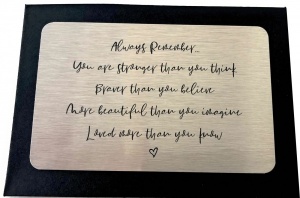 Always Remember...
You are stronger than you think
Braver than you believe
More beautiful than you imagine
Loved more than you know
♡